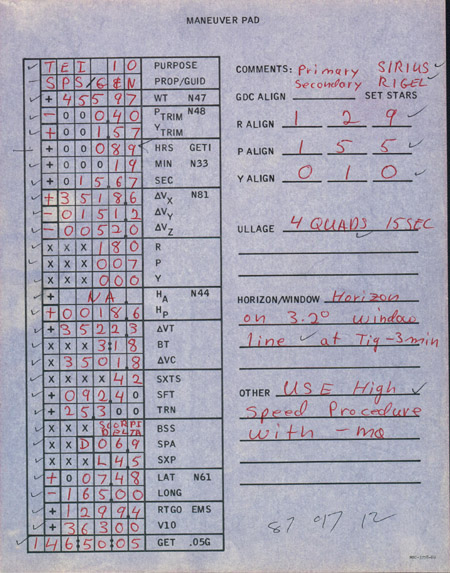 MANEUVER PAD
TEI 10 PURPOSE
SPS/G&N PROP/GUID
+ 45597 WT N47
- 00040 PTRIM N48
+ 00157 YTRIM
+ 00089 HRS GETI
+ 00019 MIN N33
+ 01567 SEC
+ 35186 ΔVX N81
- 01512 ΔVY
- 00520 ΔVZ
XXX 180 R
XXX 007 P
XXX 000 Y
+ NA HA N44
+ 0018.6 HP
+ 35223 ΔVT
XXX 3:18 BT
X 35018 ΔVC
XXXX 42 SXTS
+ 092.40 SFT
+ 253 00 TRN
XXX SCORPI DELTA BSS
XX D069 SPA
XXX L4.5 SXP
+ 0748 LAT N61
- 16500 LONG
+ 12994 RTGO EMS
+ 36300 V10
146:05:05 GET .05G
COMMENTS: Primary SIRIUS
Secondary RIGEL
GDC ALIGN SET STARS
R ALIGN 1 2 9
P ALIGN 1 5 5
Y ALIGN 0 1 0
ULLAGE 4 QUADS 15SEC
HORIZON/WINDOW Horizon
on 3.2° window
line at Tig-3min
OTHER USE High
Speed Procedure
with -ma